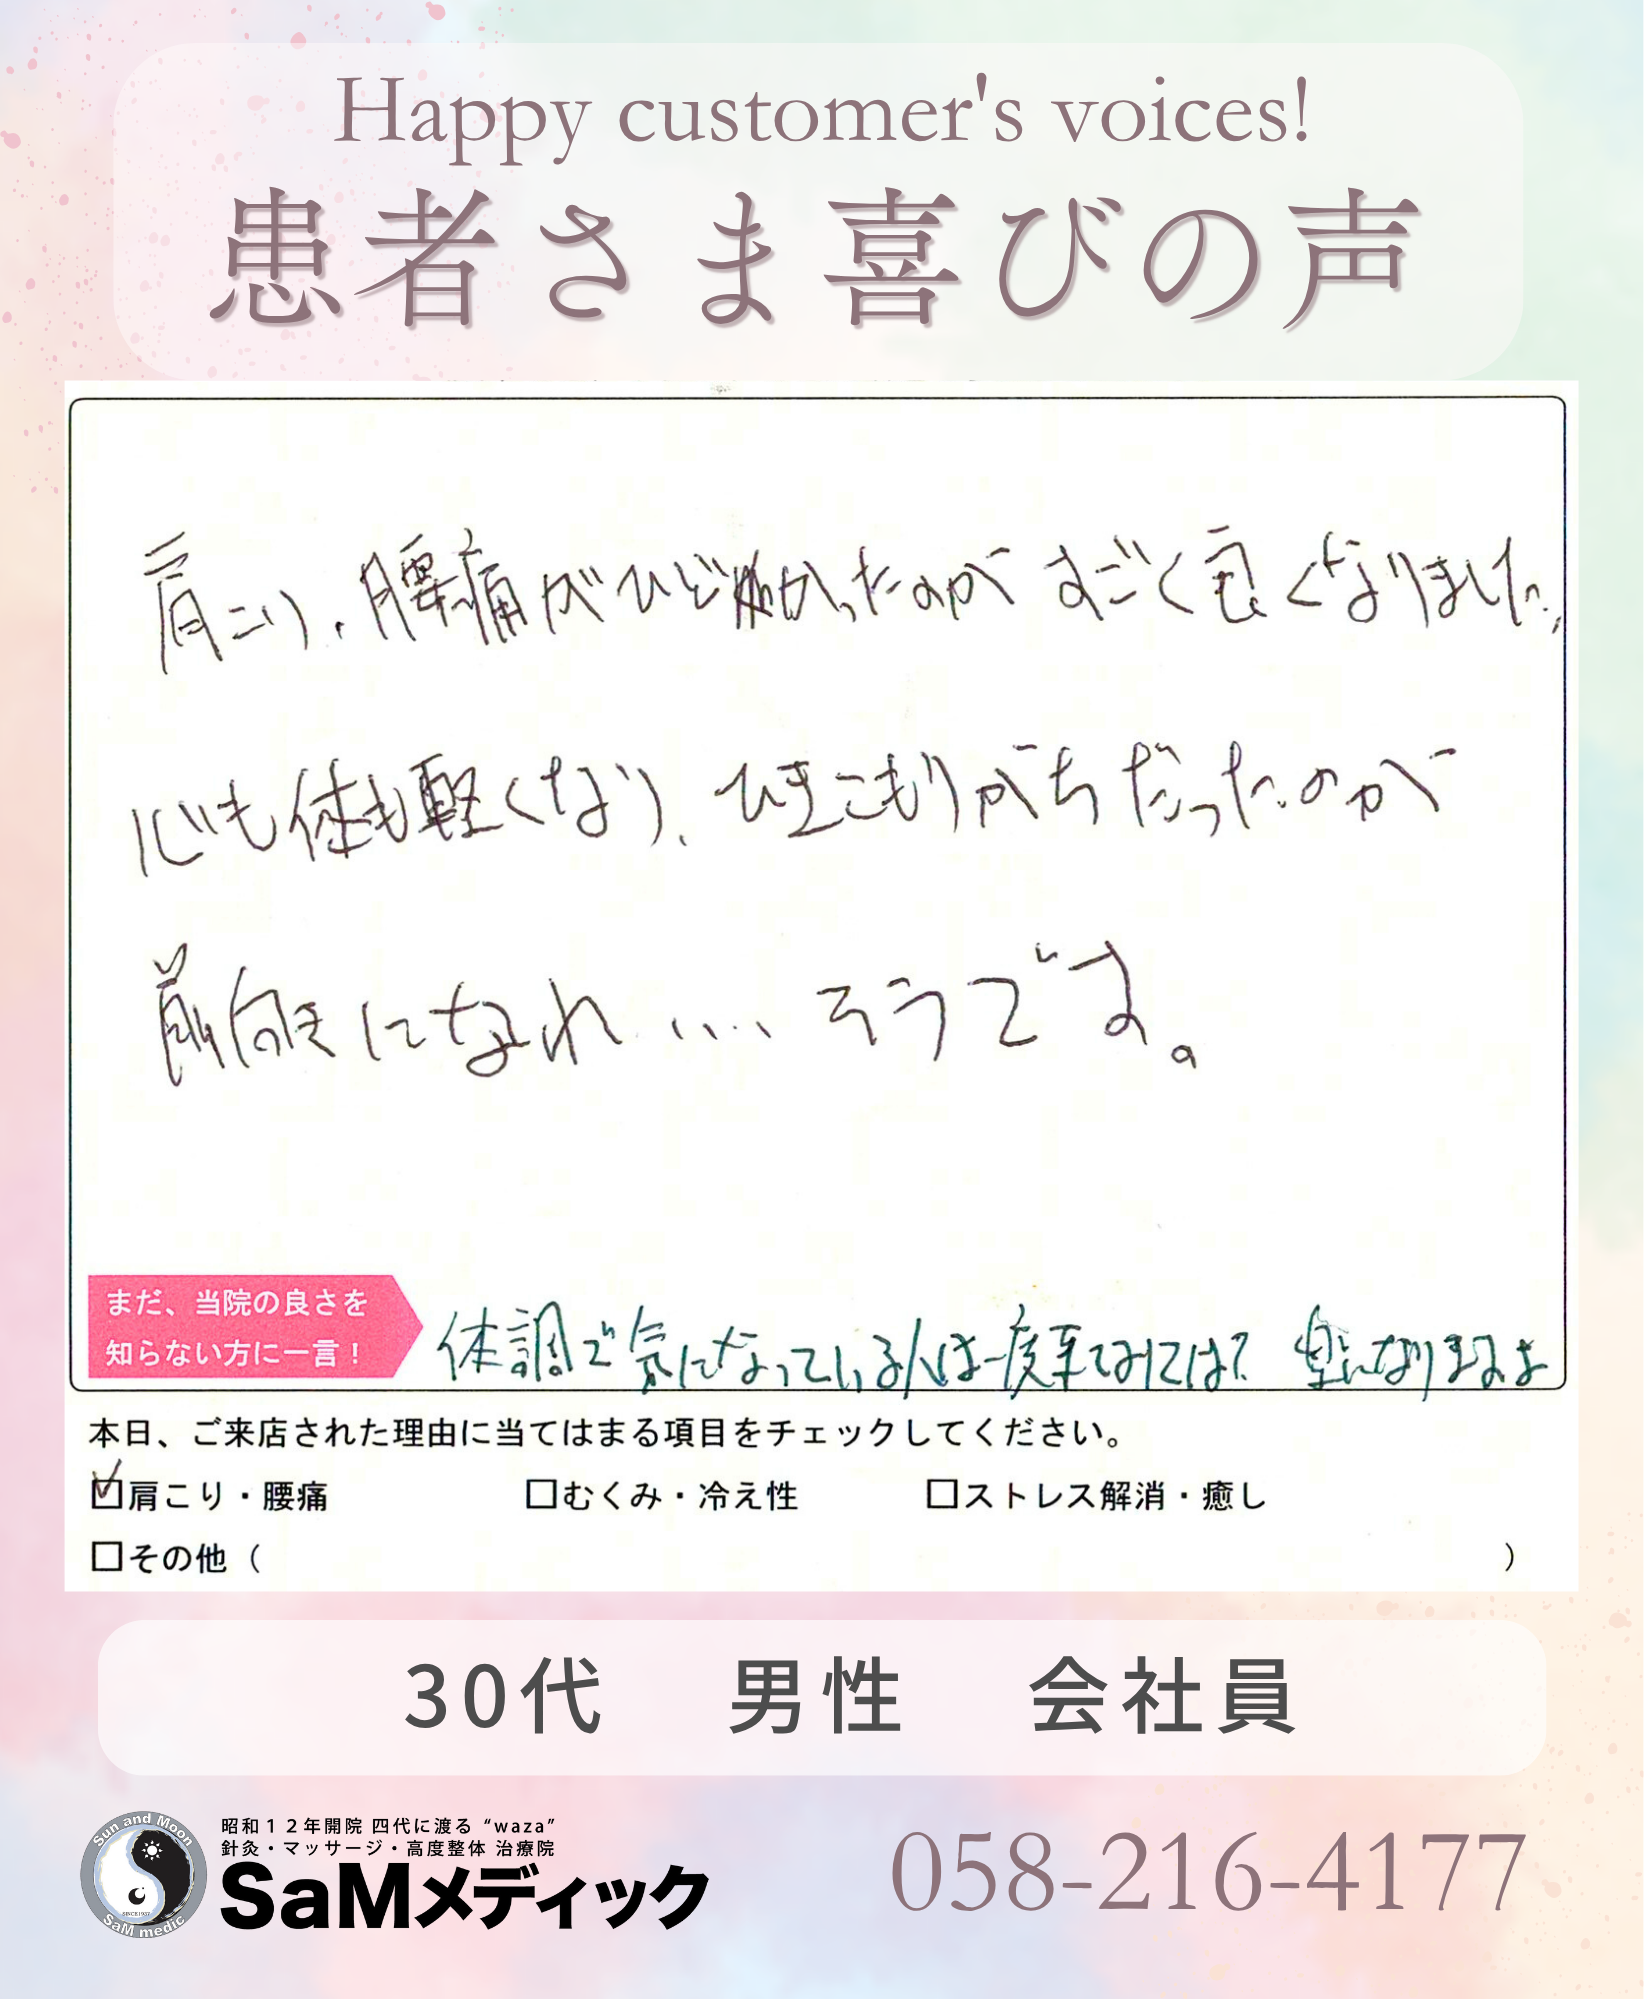 Happy customer's voices!
患者さま喜びの声
肩こり、腰痛がひどかったのが すごく良くなりました。
心も体も軽くなり、ひきこもりがちだったのが
前向きになれ・・・・そうです。
まだ、当院の良さを
知らない方に一言！
体調で気になっている人は一度来てみては？ 楽になりますよ
本日、ご来店された理由に当てはまる項目をチェックしてください。
☑肩こり・腰痛 □むくみ・冷え性 □ストレス解消・癒し
□その他（ ）
30代 男性 会社員
Sun and Moon
SINCE1937
SaM medic
昭和１２年開院 四代に渡る “waza”
針灸・マッサージ・高度整体 治療院
SaMメディック
058-216-4177